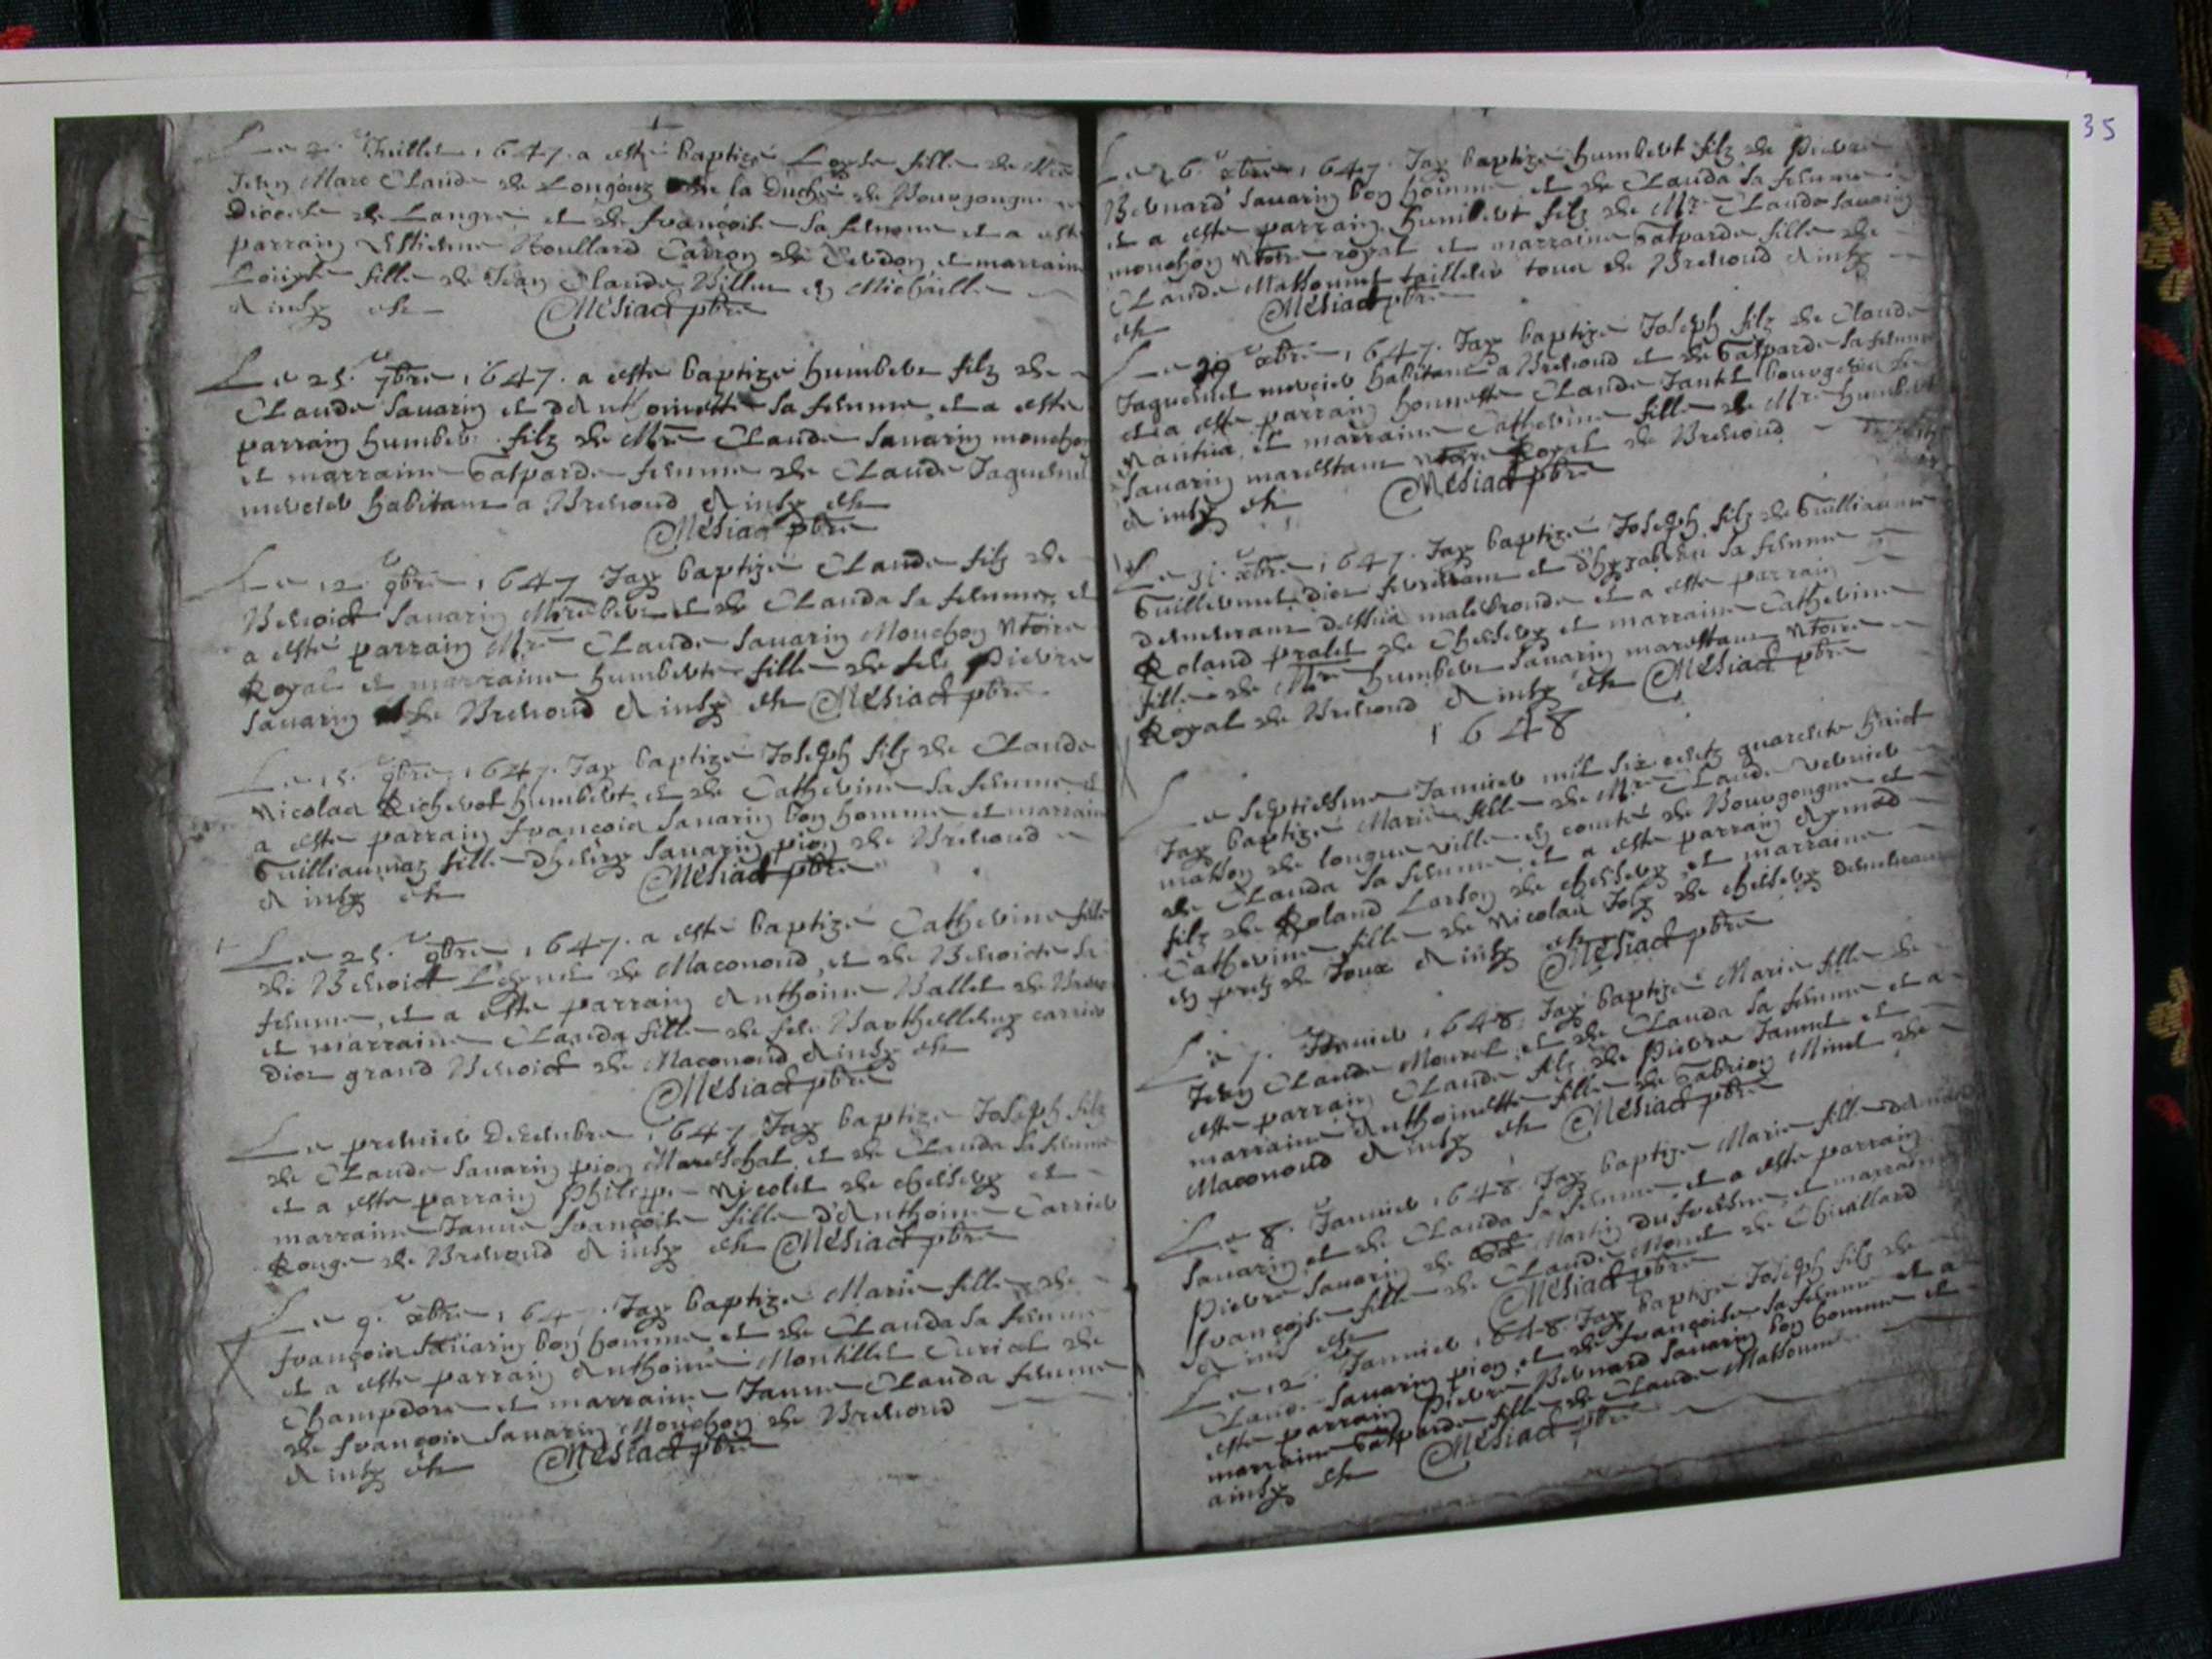 35
Le 2e Juillet 1647 a esté baptizé Loyse fille de
Jehan Marc Claude de de la Duché de Bourgongne
Diocese de Langre et de françoise sa femme et a esté
parrain Estienne Roullard Carron de Cerdon et marraine
Louyse fille de Jean Claude en Michaille
Ainsy est Mesiact pbre
Le 25e 7bre 1647 a esté baptizé humbert filz de
Claude Savarin et d'Anthoinette sa femme et a esté
parrain humbert filz de Mre Claude Savarin mouchon
et marraine Gasparde femme de Claude Jaquemet
mercier habitant a Brenond Ainsy est
Mesiact pbre
Le 12e 9bre 1647 Jay baptizé Claude filz de
Benoict Savarin et de Clauda sa femme et
a esté parrain Mre Claude Savarin Mouchon Ntoire
Royal et marraine humberte fille de feu Pierre
Savarin de Brenond Ainsy est Mesiact pbre
Le 15e 9bre 1647 Jay baptizé Joseph filz de Claude
Nicolas humbert et de Catherine sa femme et
a esté parrain françois Savarin bon homme et marraine
Guilliaumaz fille Savarin pion de Brenond
Ainsy est Mesiact pbre
Le 25e 9bre 1647 a esté baptizé Catherine fille
de Benoict de Maconond et de Benoicte sa
femme, et a esté parrain Anthoine Ballet de
et marraine Clauda fille de feu Barthellemy carrier
dict grand Benoict de Maconond Ainsy est
Mesiact pbre
Le premier Decembre 1647 Jay baptizé Joseph filz
de Claude Savarin pion Mareschal et de Clauda sa femme
et a esté parrain Philippe Nicolet de Chessery et
marraine Janne françoise fille d'Anthoine Carrier
Rouge de Brenond Ainsy est Mesiact pbre
Le 9e xbre 164 Jay baptizé Marie fille de
françois Savarin bon homme et de Clauda sa femme
et a esté parrain Anthoine Montillet Curial de
Champdore et marraine Janne Clauda femme
de françois Savarin Mouchon de Brenond
Ainsy est Mesiact pbre
Le 26e xbre 1647 Jay baptizé humbert filz de Pierre
Bernard Savarin bon homme et de Clauda sa femme
et a esté parrain humbert filz de Mre Claude Savarin
mouchon Ntoire royal et marraine Gasparde fille de
Claude Massonnet tailleur tous de Brenond Ainsy
est Mesiact pbre
Le 29 xbre 1647 Jay baptizé Joseph filz de Claude
Jaquemet mercier habitant a Brenond et de Gasparde sa femme
et a esté parrain honneste Claude bourgeois de
Nantua, et marraine Catherine fille de Mre humbert
Savarin marestant Ntoire Royal de Brenond
Ainsy est Mesiact pbre
Le 31e xbre 1647 Jay baptizé Joseph filz de Guilliaume
Guillermet dict et sa femme
demeurant et a esté parrain
Roland pralet de Chessery et marraine Catherine
fille de Mre humbert Savarin marestant Ntoire
Royal de Brenond Ainsy est Mesiact pbre
1648
Le septiesme Janvier mil six centz quarente huict
Jay baptizé Marie fille de Mre Claude vernier
masson de longue ville en comté de Bourgongne et
de Clauda sa femme et a esté parrain Aymed
filz de Roland de Chessery et marraine
Catherine fille de Nicolas de Chessery demeurant
en pretz de Joux Ainsy est
Mesiact pbre
Le 7 Janvier 1648 Jay baptizé Marie fille de
Jehan Claude et de Clauda sa femme et a
esté parrain Claude filz de Pierre et
marraine Anthoinette fille de Gabriou Minet de
Maconond Ainsy est Mesiact pbre
Le 8 Janvier 1648 Jay baptizé Marie fille
Savarin et de Clauda sa femme et a esté parrain
Pierre Savarin de St Martin du fresne et marraine
françoise fille de Claude Monet de Chivillard
Ainsy est Mesiact pbre
Le 12e Janvier 1648 Jay baptizé Joseph filz de
Claude Savarin pion et de françoise sa femme et a
esté parrain Pierre Bernard Savarin bon homme et
marraine Gasparde fille de Claude Massonnet
ainsy est Mesiact pbre